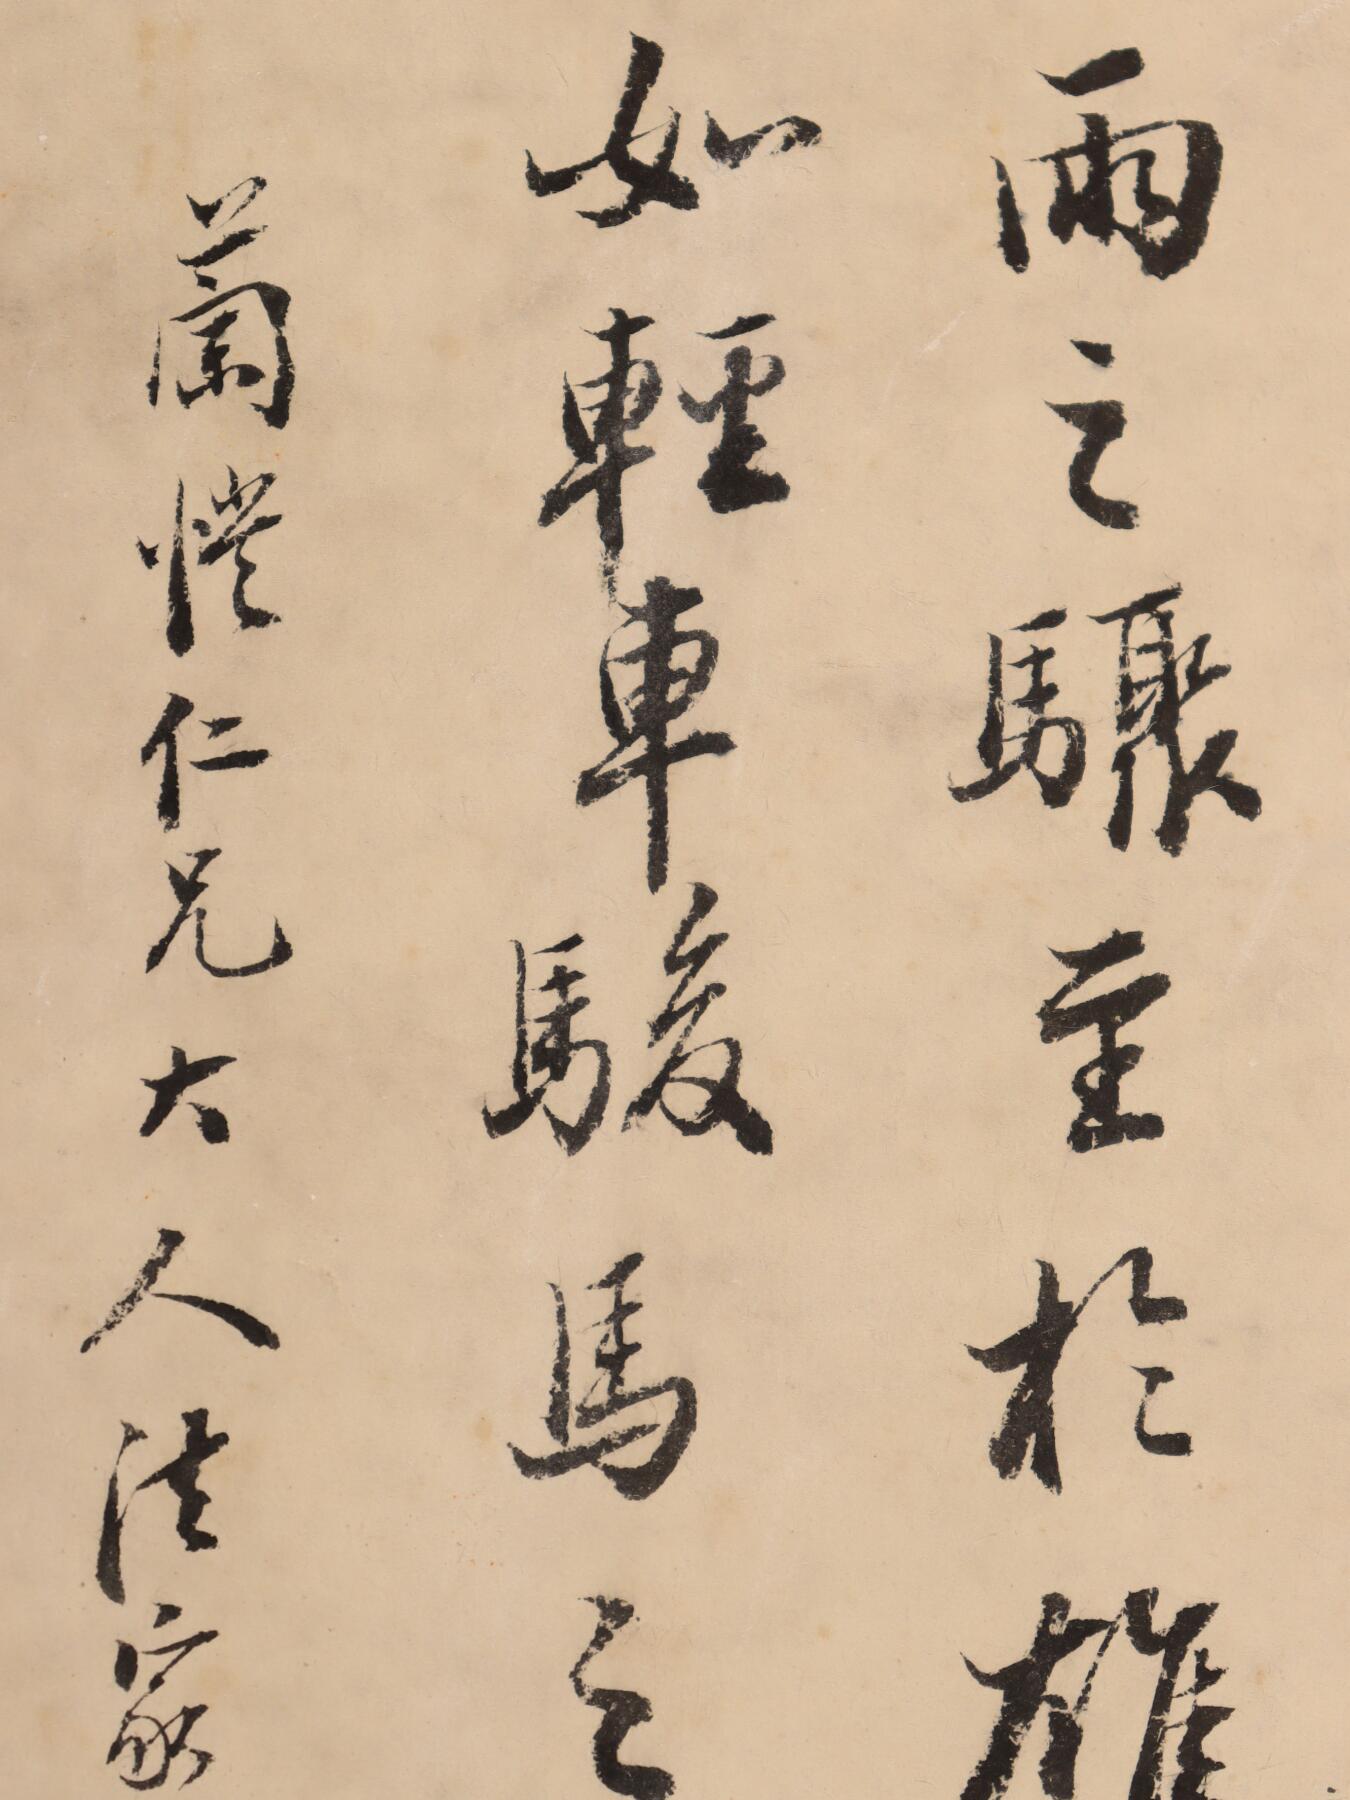 雨之驟至於雄
如輕車駿馬之
蘭愷仁兄大人法家